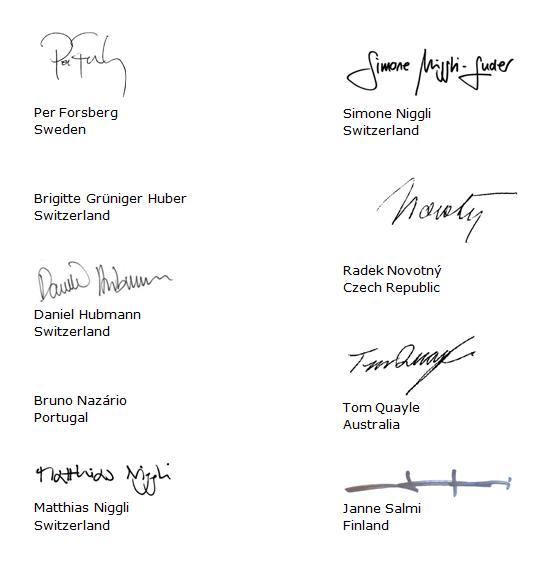 Per Forsberg
Sweden
Brigitte Grüniger Huber
Switzerland
Daniel Hubmann
Daniel Hubmann
Switzerland
Bruno Nazário
Portugal
Matthias Niggli
Matthias Niggli
Switzerland
Simone Niggli-Luder
Simone Niggli
Switzerland
Novotný
Radek Novotný
Czech Republic
Tom Quayle
Tom Quayle
Australia
Janne Salmi
Finland